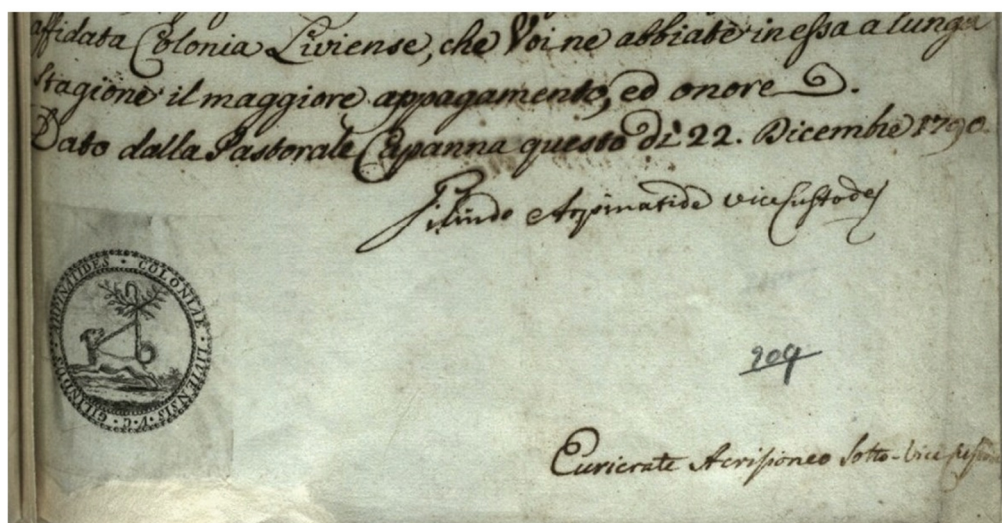 affidata Colonia Liviense, che Voi ne abbiate in essa a lunga
Stagione il maggiore appagamento, ed onore.
Dato dalla Pastorale Capanna questo dì 22. Dicembre 1790.
Gilindo Arpinatide vice Custode
GILINDUS · ARPINATIDES · COLONIAE · LIVIENSIS · V · C ·
209
Euricrate Acrisioneo Sotto-Vice Custode